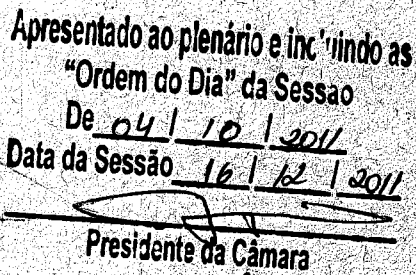 Apresentado ao plenário e incluindo as
"Ordem do Dia" da Sessão
De 04 / 10 / 2011
Data da Sessão 16 / 12 / 2011
Presidente da Câmara